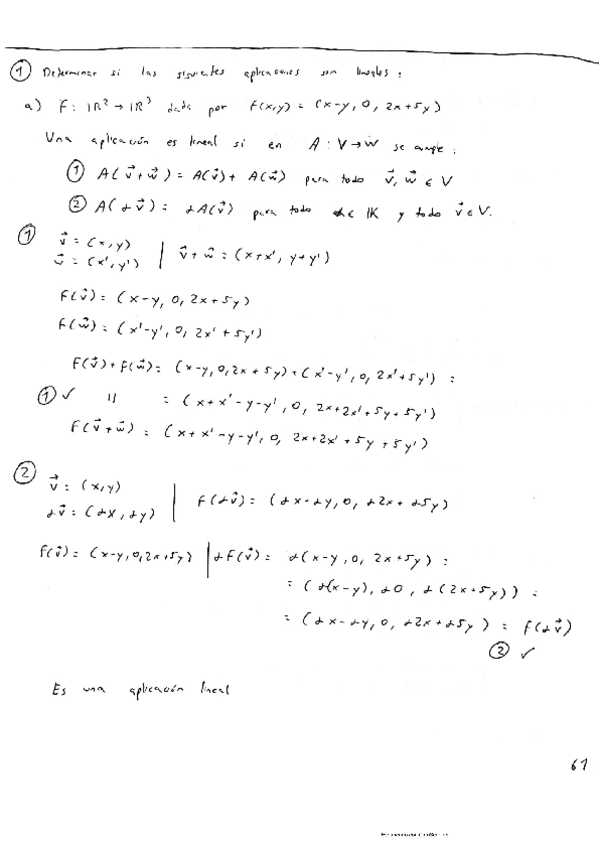 ① Determinar si las siguientes aplicaciones son lineales:
a) F: ℝ² → ℝ³ dada por f(x,y) = (x-y, 0, 2x+5y)
Una aplicación es lineal si en A: V→W se cumple:
① A(v⃗+w⃗) = A(v⃗) + A(w⃗) para todo v⃗, w⃗ ∈ V
② A(αv⃗) = αA(v⃗) para todo α∈ IK y todo v⃗∈V.
① v⃗ = (x,y) | v⃗+w⃗ = (x+x', y+y')
w⃗ = (x',y')
f(v⃗) = (x-y, 0, 2x+5y)
f(w⃗) = (x'-y', 0, 2x'+5y')
f(v⃗)+f(w⃗) = (x-y,0,2x+5y)+(x'-y', 0, 2x'+5y') =
① ✓ = (x+x'-y-y', 0, 2x+2x'+5y+5y')
f(v⃗+w⃗) = (x+x'-y-y', 0, 2x+2x'+5y+5y')
② v⃗ = (x,y) | f(αv⃗) = (αx-αy, 0, α2x+α5y)
αv⃗ = (αx, αy)
f(v⃗) = (x-y,0,2x+5y) | αF(v⃗) = α(x-y, 0, 2x+5y) =
= (α(x-y), α0, α(2x+5y)) =
= (αx-αy, 0, α2x+α5y) = f(αv⃗)
② ✓
Es una aplicación lineal
61